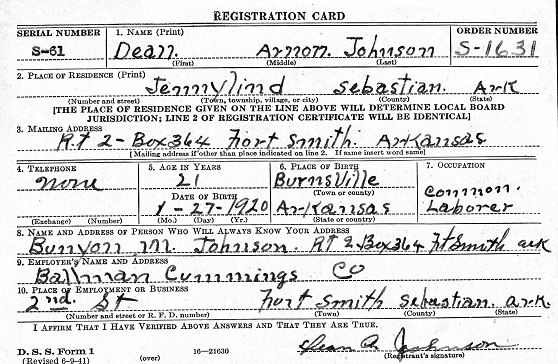 REGISTRATION CARD
SERIAL NUMBER 1. NAME (Print) ORDER NUMBER
S-61 Dean. Armon. Johnson S-1631
(First) (Middle) (Last)
2. PLACE OF RESIDENCE (Print)
Jennylind Sebastian. Ark
(Number and street) (Town, township, village, or city) (County) (State)
[THE PLACE OF RESIDENCE GIVEN ON THE LINE ABOVE WILL DETERMINE LOCAL BOARD
JURISDICTION; LINE 2 OF REGISTRATION CERTIFICATE WILL BE IDENTICAL]
3. MAILING ADDRESS
Rt 2-Box 364 Fort Smith. Arkansas
[Mailing address if other than place indicated on line 2. If same insert word same]
4. TELEPHONE 5. AGE IN YEARS 6. PLACE OF BIRTH 7. OCCUPATION
none 21 Burnsville Common.
(Town or county)
DATE OF BIRTH
1-27-1920 Arkansas Laborer
(Exchange) (Number) (Mo.) (Day) (Yr.) (State or country)
8. NAME AND ADDRESS OF PERSON WHO WILL ALWAYS KNOW YOUR ADDRESS
Bunyon M. Johnson. Rt 2 Box 364 Ft Smith ark
9. EMPLOYER'S NAME AND ADDRESS
Ballman Cummings Co
10. PLACE OF EMPLOYMENT OR BUSINESS
2nd. St Fort Smith Sebastian. ark
(Number and street or R. F. D. number) (Town) (County) (State)
I AFFIRM THAT I HAVE VERIFIED ABOVE ANSWERS AND THAT THEY ARE TRUE.
D. S. S. Form 1 Dean A Johnson
(Revised 6-9-41) (over) 16—21630 (Registrant's signature)